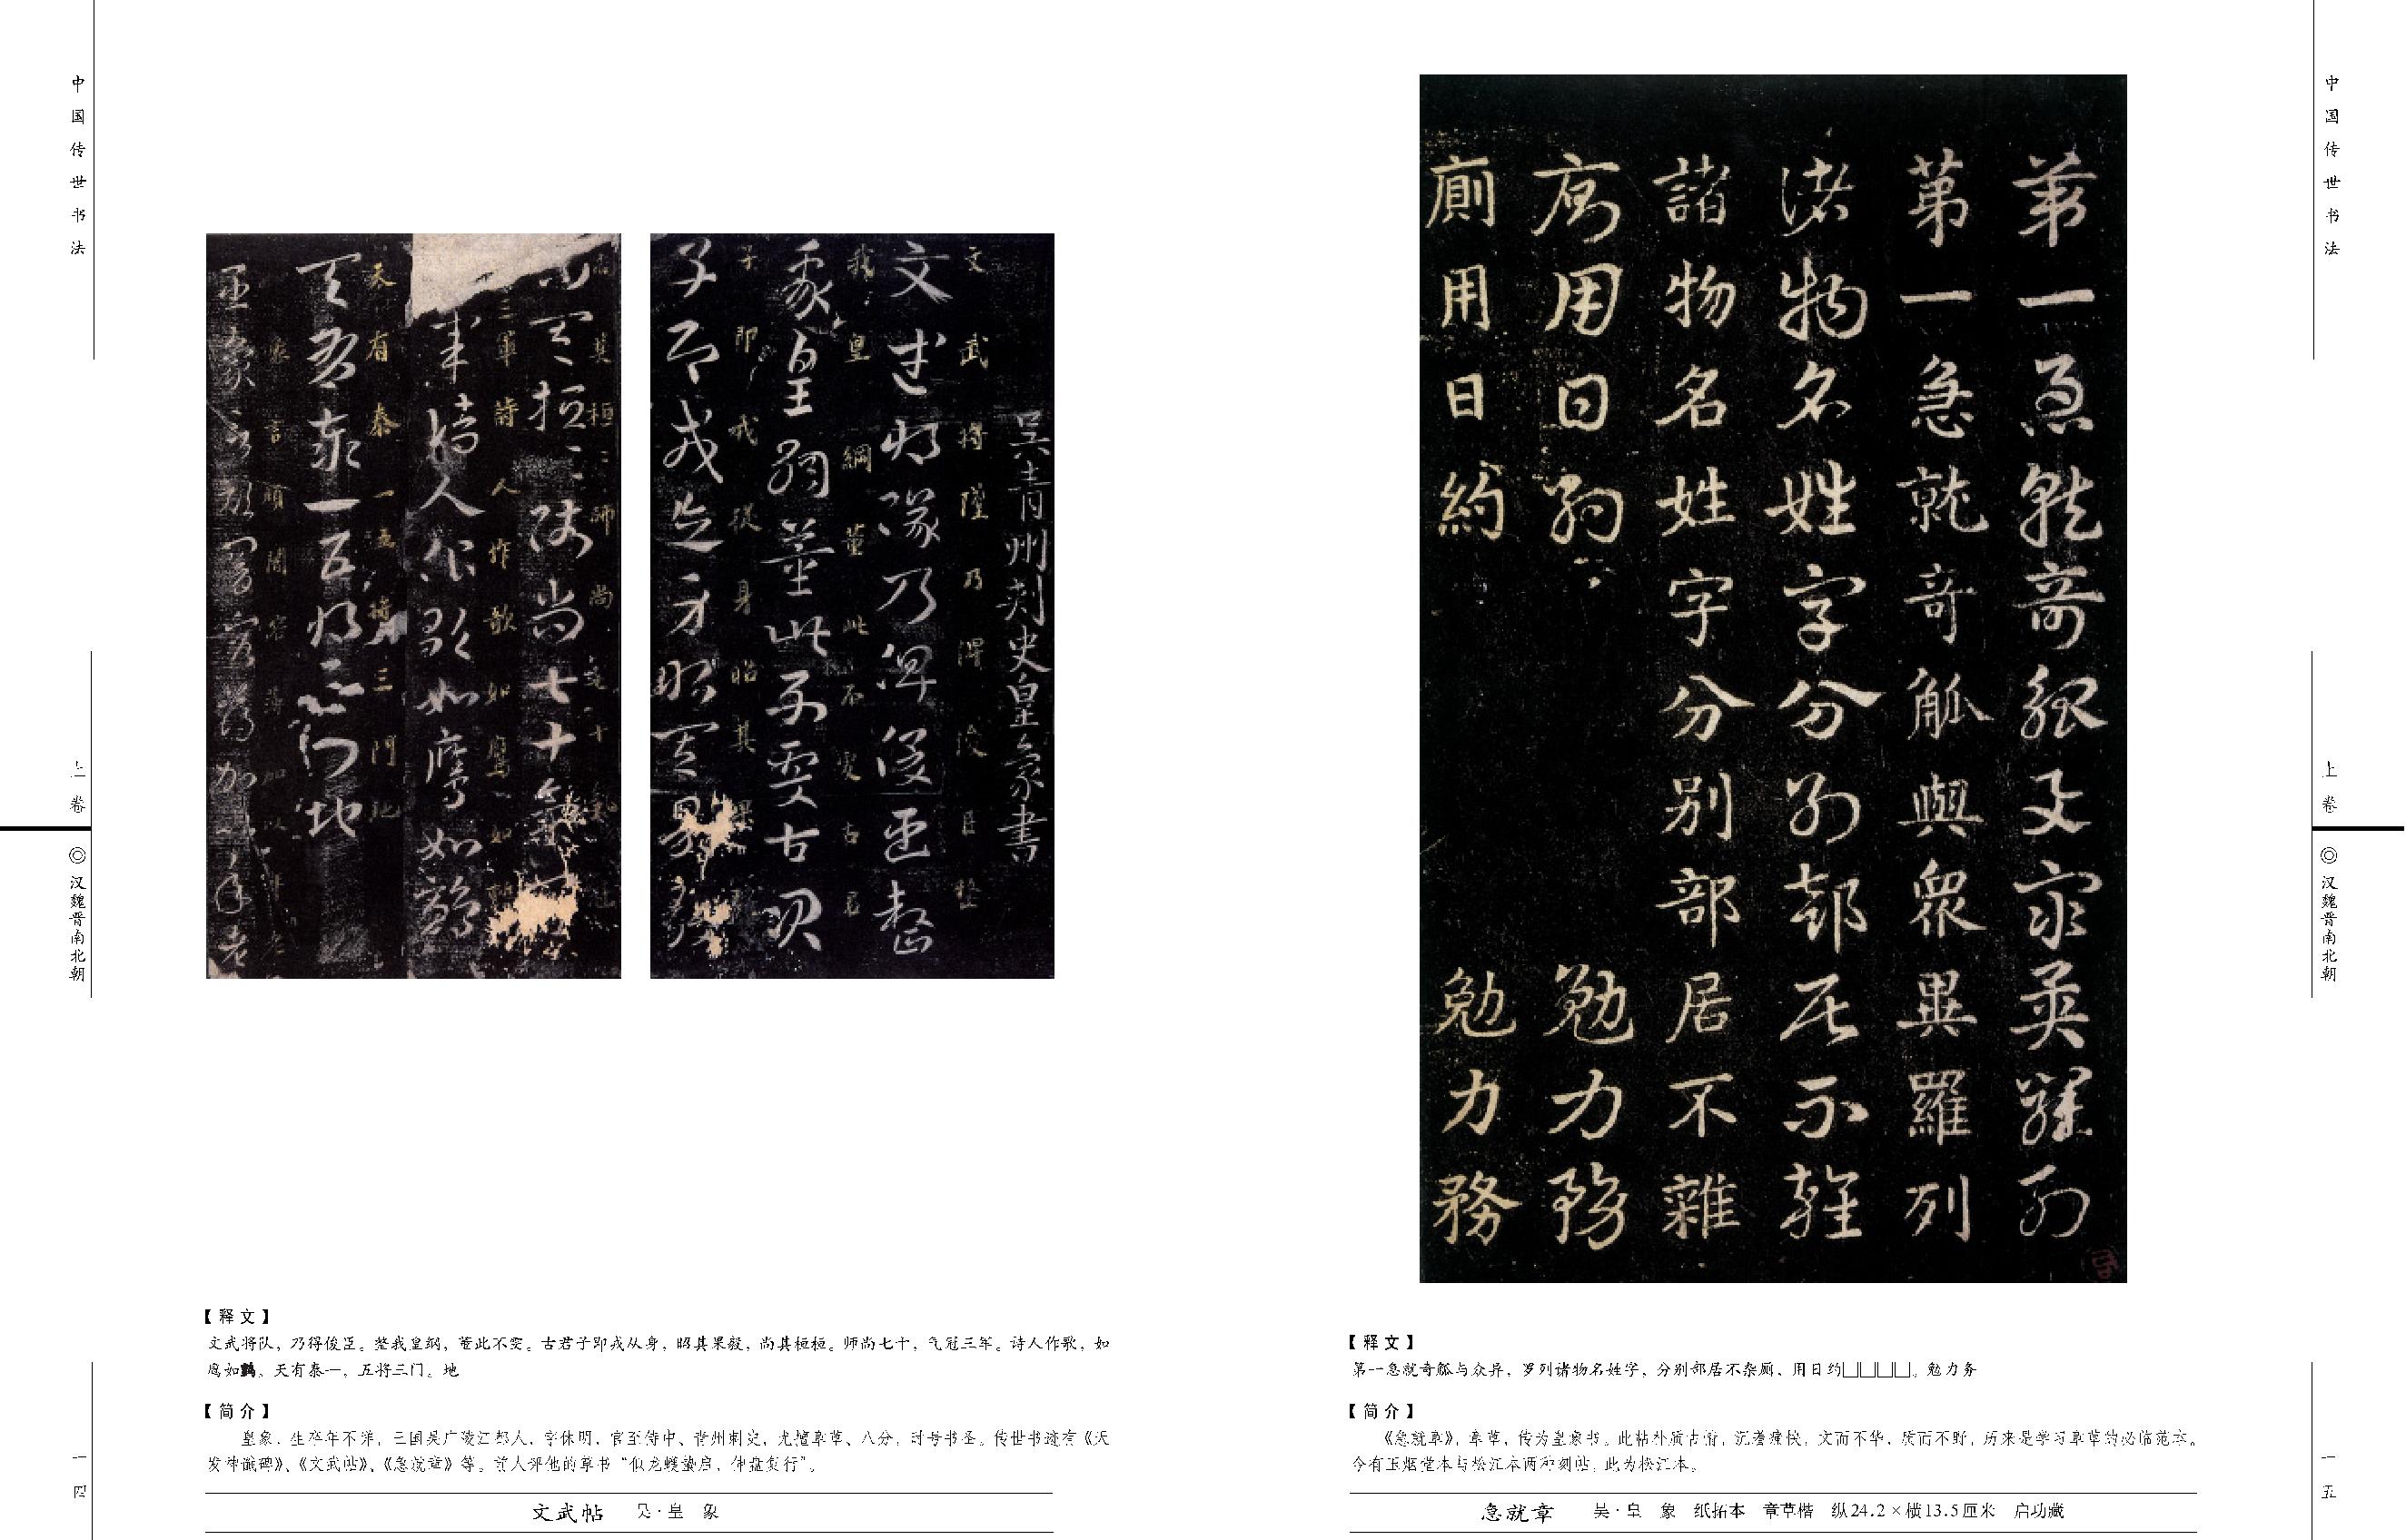 中国传世书法
上卷
◎汉魏晋南北朝
一四
吴青州刺史皇象書
文武将隊乃俾俊臣整
我皇綱董此不虔古君
子即戎從身昭其果毅
尚其桓〻師尚七十氣冠
三軍詩人作歌如鷹如鸇
天有泰一五將三門地
【释文】
文武将队，乃得俊臣。整我皇纲，董此不变。古君子即戎从身，昭其果毅，尚其桓桓。师尚七十，气冠三军。诗人作歌，如
鹰如鹯。天有泰一，五将三门。地
【简介】
皇象，生卒年不详，三国吴广陵江都人，字休明，官至侍中、青州刺史，尤擅章草、八分，时号书圣。传世书迹有《天
发神谶碑》、《文武帖》、《急就章》等。前人评他的章书“似龙蠖蛰启，伸盘复行”。
文武帖 吴·皇 象
中国传世书法
上卷
◎汉魏晋南北朝
一五
第一急就奇觚與衆異羅列
第一急就奇觚與衆異羅列
諸物名姓字分别部居不雜
諸物名姓字分别部居不雜
廁用日約 勉力務
廁用日約 勉力務
【释文】
第一急就奇觚与众异，罗列诸物名姓字，分别部居不杂厕、用日约□□□□。勉力务
【简介】
《急就章》，章草，传为皇象书。此帖朴质古俏，沉着痛快，文而不华，质而不野，历来是学习章草的必临范本。
今有玉烟堂本与松江本两种刻帖，此为松江本。
急就章 吴·皇 象 纸拓本 章草楷 纵24.2×横13.5厘米 启功藏